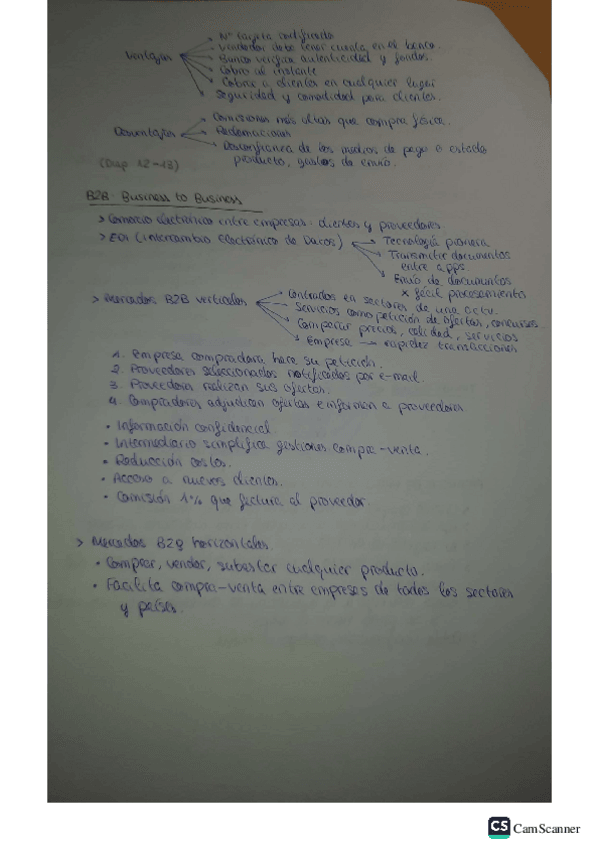 Nº tarjeta codificado
Vendedor debe tener cuenta en el banco.
Ventajas
Banco verifica autenticidad y fondos.
Cobro al instante
Cobrar a clientes en cualquier lugar
Seguridad y comodidad para clientes.
Comisiones más altas que compra física.
Desventajas
Reclamaciones
Desconfianza de los medios de pago o estado
producto, gastos de envío.
(Diap 12-13)
B2B: Business to Business
> Comercio electrónico entre empresas: clientes y proveedores
> EDI (intercambio electrónico de Datos)
Tecnología pionera
Transmitir documentos
entre apps
Envío de documentos
x fácil procesamiento
> Mercados B2B verticales
Centrados en sectores de una activ.
Servicios como petición de ofertas, concursos..
Comparar precios, calidad, servicios
Empresa → rapidez transacciones
1. Empresa compradora hace su petición.
2. Proveedores seleccionados notificados por e-mail.
3. Proveedora realizan sus ofertas.
4. Compradores adjudican ofertas e informan a proveedores
• Información confidencial
• Intermediario simplifica gestiones compra-venta.
• Reducción costes.
• Acceso a nuevos clientes.
• Comisión 1% que factura al proveedor.
> Mercados B2B horizontales
• Comprar, vender, subastar cualquier producto.
• Facilita compra-venta entre empresas de todos los sectores
y países.
CS CamScanner